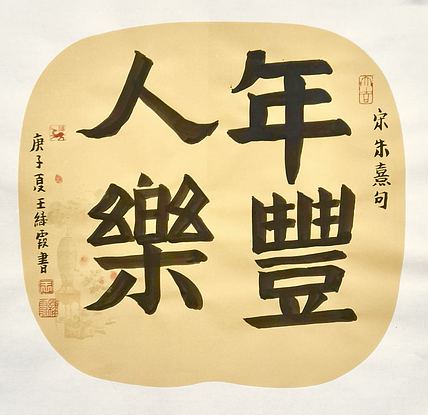 大吉
宋朱熹句
年豐
人樂
庚子夏王霞書